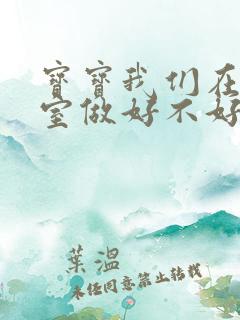 寶寶我们在
室做好不好
葉溫
未经同意禁止转载